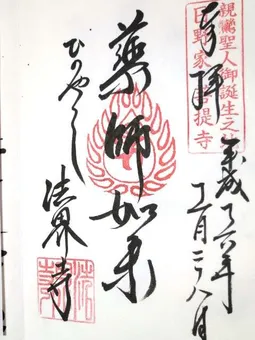 親鸞聖人御誕生之地
日野家菩提寺
奉拝
平成二六年
五月二八日
薬師如来
ひのやくし
法界寺